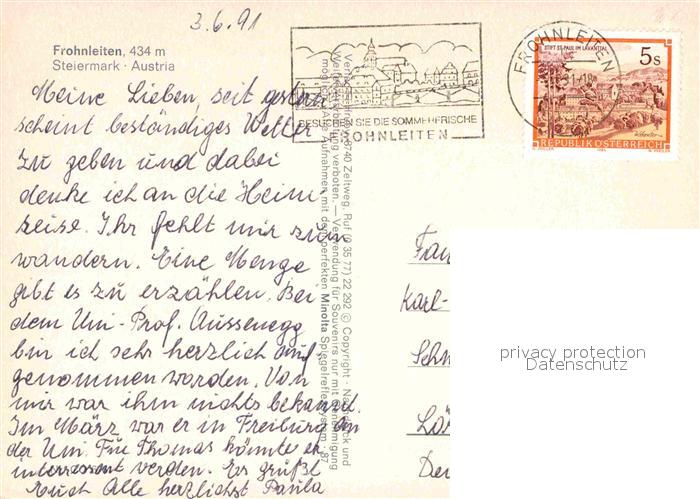 3.6.91
Frohnleiten, 434 m
Steiermark · Austria
BESUCHEN SIE DIE SOMMERFRISCHE
FROHNLEITEN
FROHNLEITEN
STIFT ST. PAUL IM LAVANTTAL
5 S
REPUBLIK ÖSTERREICH
Meine Lieben, seit gestern
scheint beständiges Wetter
zu geben und dabei
denke ich an die Heim-
reise. Ihr fehlt mir zum
wandern. Eine Menge
gibt es zu erzählen. Bei
dem Uni-Prof. Aussenegg
bin ich sehr herzlich auf
genommen worden. Von
mir war ihm nichts bekannt.
Im März war er in Freiburg an
der Uni. Für Thomas könnte er
interessant werden. Es grüßt
Euch Alle herzlichst Paula
8740 Zeltweg. Ruf (0 35 77) 22 292 © Copyright · Nachdruck und
verboten. — Verwendung für Souvenirs nur mit Genehmigung
Aufnahme mit dem perfekten Minolta Spiegelreflexsystem · 87
Karl-
privacy protection
Datenschutz